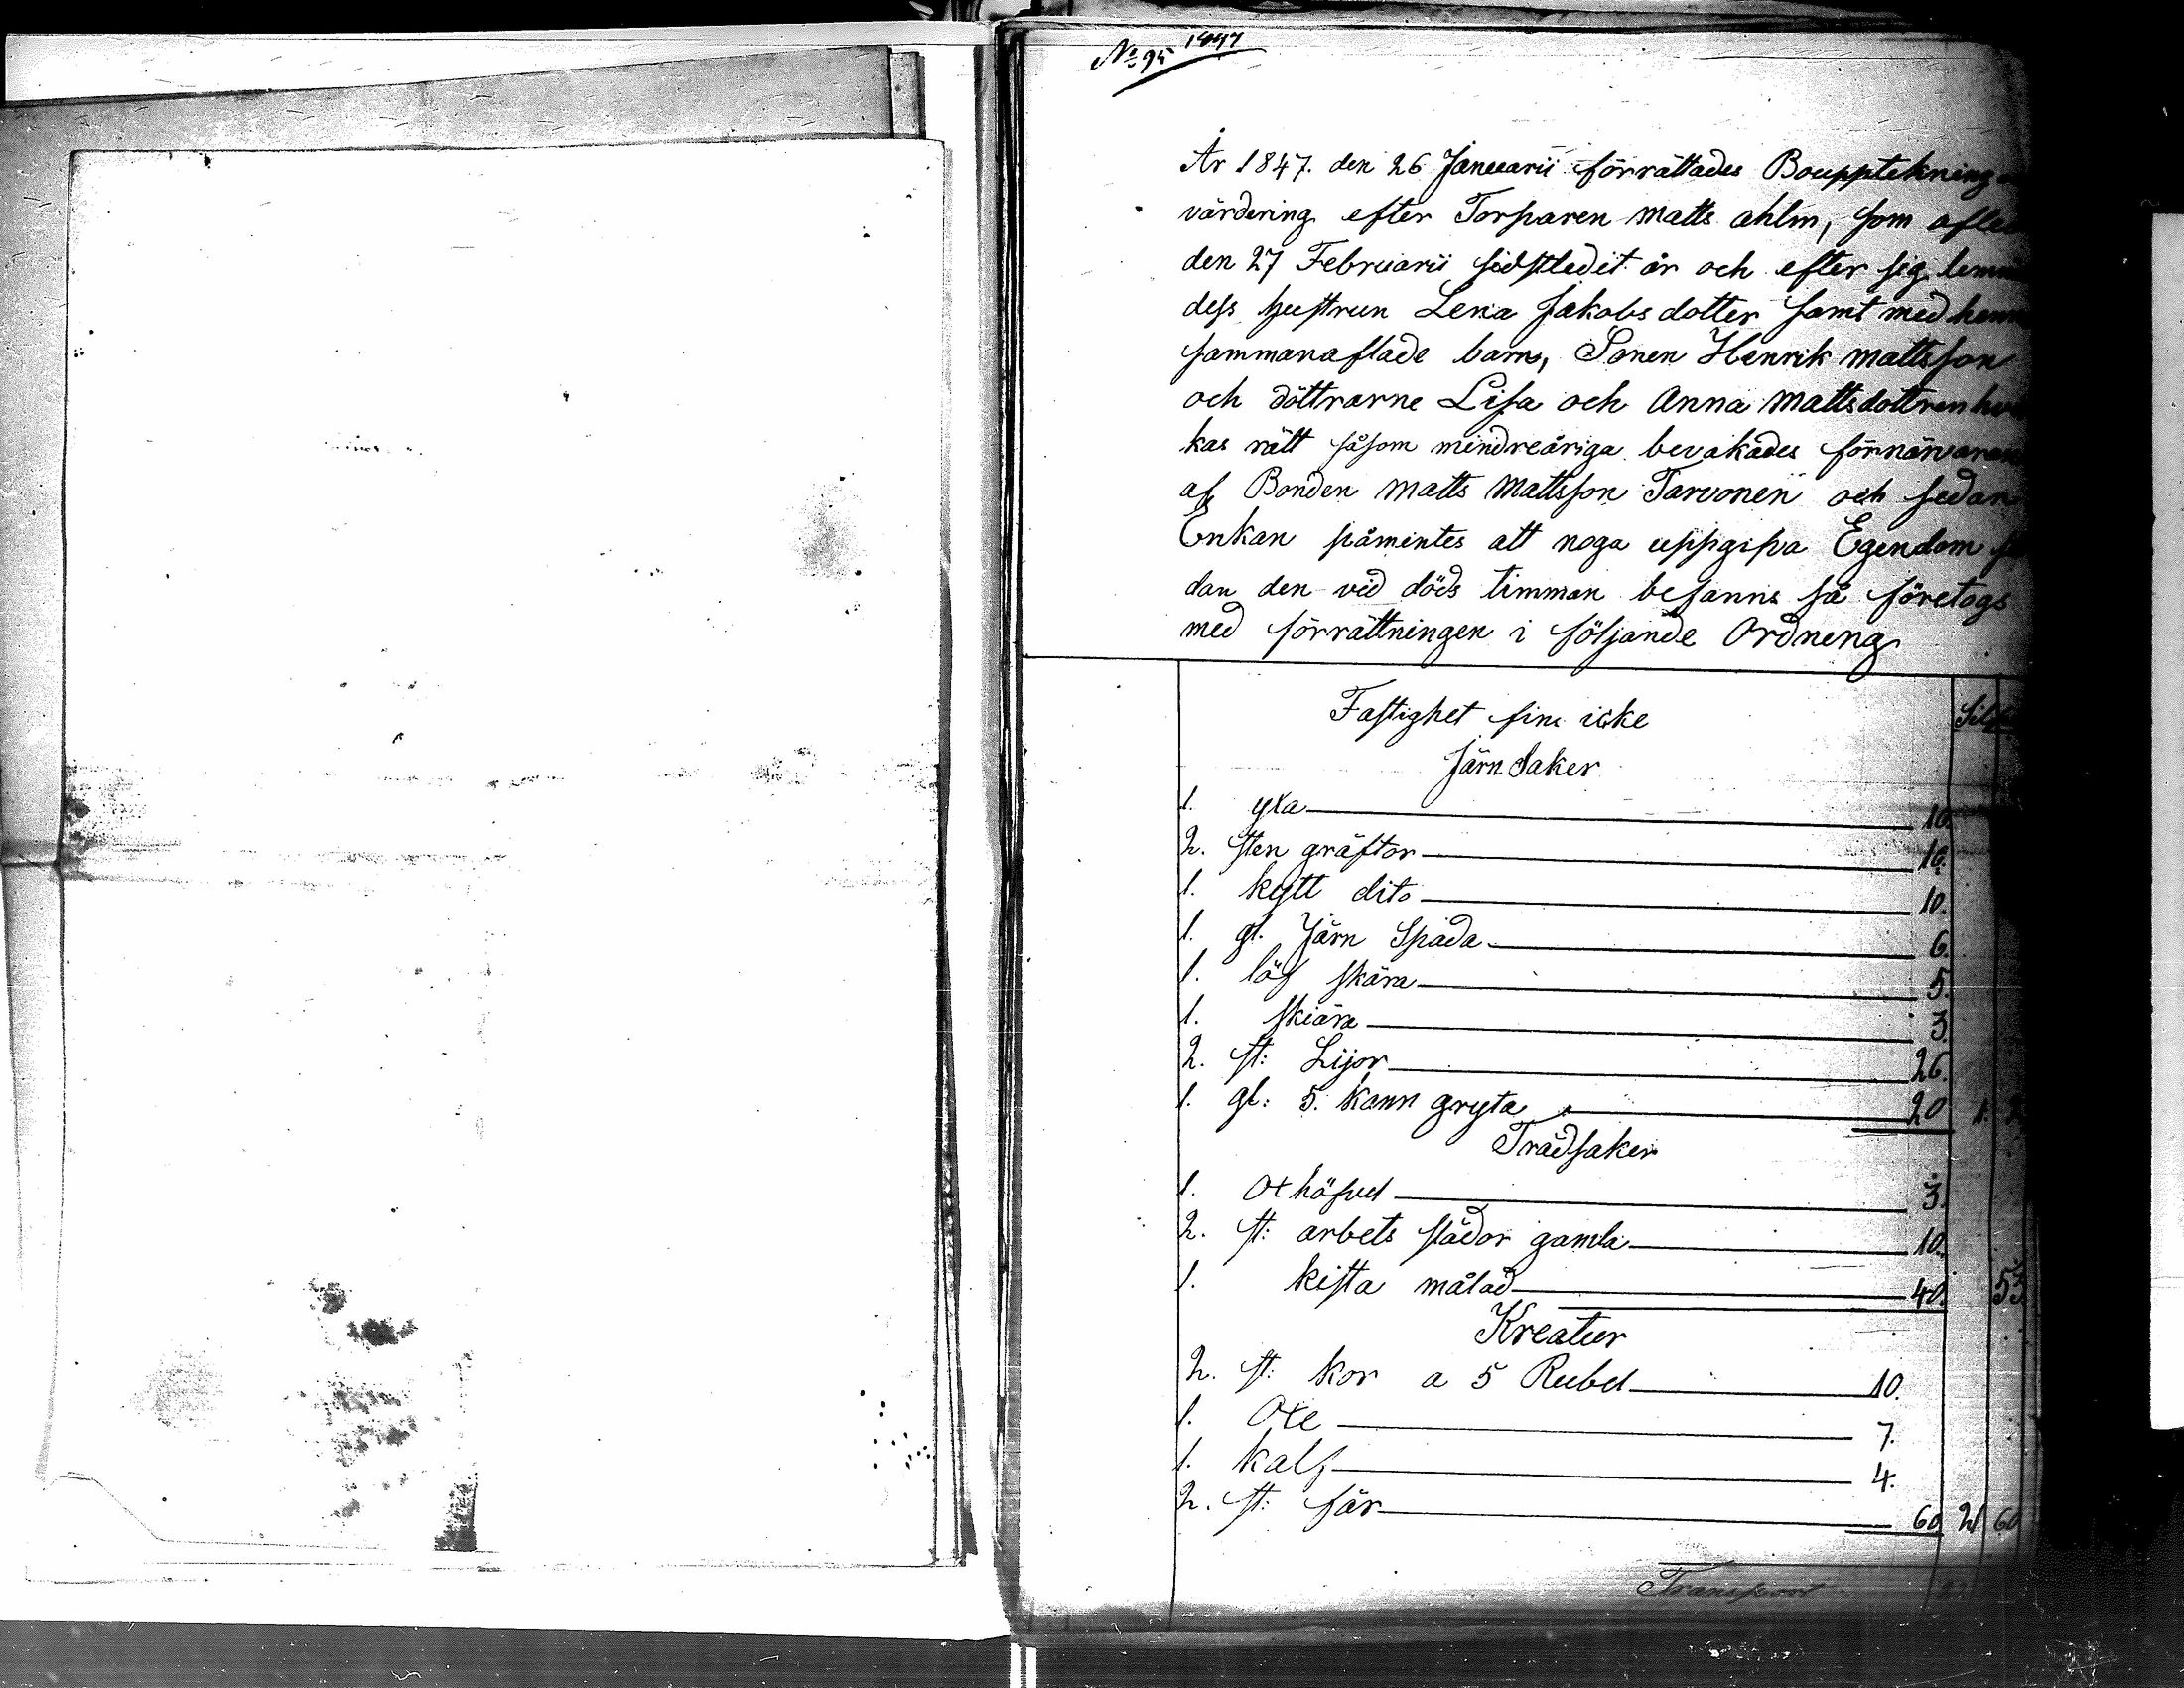 No 95 1847
År 1847. den 26 Januarii förrättades Boupptekning
värdering efter Torparen Matts Ahlm, som afled
den 27 Februarii sidstledit år och efter sig lemn
dess hustrun Lena Jakobsdotter samt med henn
sammanaflade barn, Sonen Henrik Mattsson
och döttrarne Lisa och Anna Mattsdottren hvil
kas rätt såsom mindreåriga bevakades förnärvaran
af Bonden Matts Mattsson Tarvonen och sedan
Enkan påmintes att noga uppgifva Egendom så
dan den vid döds timman befanns så företogs
med förrättningen i följande Ordneng
Fastighet fins icke Silf
Järn Saker
1. yxa 10.
2. sten gräftor 16.
1. kytt dito 10.
1. gl. Järn Spada 6.
1. löf skära 5.
1. skiära 3.
2. st: Lijor 26.
1. gl: 5. kann gryta 20 1.
Trädsaker
1. Oxhöfvel 3.
2. st: arbets slädor gamla 10.
1. kista målad 40. 53
Kreatur
2. st: kor a 5 Rubel 10.
1. Oxe 7.
1. kalf 4.
2. st: får 60 21 60
Transport